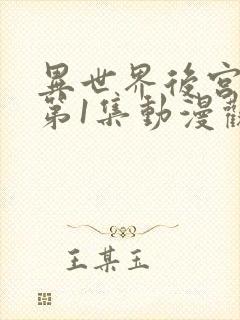 異世界後宮
第1集動漫觀
王某玉